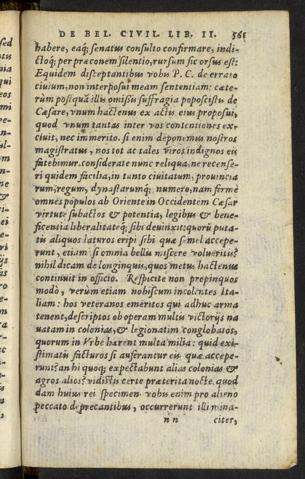 DE BEL. CIVIL. LIB. II. 561
habere, eaq́; senatus consulto confirmare, indi-
ctoq́; per præconem silentio, rursum sic orsus est:
Equidem disceptantibus vobis P. C. de errato
ciuium, non interposui meam sententiam: cæte-
rùm posteaquā illi omissis suffragia poposcistis de
Cæsare, vnum hactenus ex actis eius proposui,
quod vnum tantas inter vos contentiones ex-
ciuit, nec immerito. si enim deponemus nostros
magistratus, nos tot ac tales viros indignos eis
fatebimur. considerate nunc reliqua, ne recense-
ri quidem facilia, in tanto ciuitatum, prouincia
rum, regum, dynastarumq́; numero. nam fermè
omnes populos ab Oriente in Occidentem Cæsar
virtute subactos & potentia, legibus & bene-
ficentia liberalitateq́; sibi deuinxit: quorū puta-
tis aliquos laturos eripi sibi quæ semel accepe-
runt, etiam si omnia bellu miscere volueritis?
nihil dicam de longinquis, quos metus hactenus
continuit in officio. Respicite non propinquos
modò, verùm etiam nobiscum incolentes Ita-
liam: hos veteranos emeritos qui adhuc arma
tenent, descriptos ob operam multis victorijs na
uatam in colonias, & legionatim conglobatos,
quorum in Vrbe hærent multa milia: quid exi-
stimatis facturos si auferantur eis quæ accepe-
runt? an hi quoq́; expectabunt alias colonias &
agros alios? vidistis certe præterita nocte. quod
dam huius rei specimen. vobis enim pro alieno
peccato deprecantibus, occurrerunt illi mina-
nn citer,